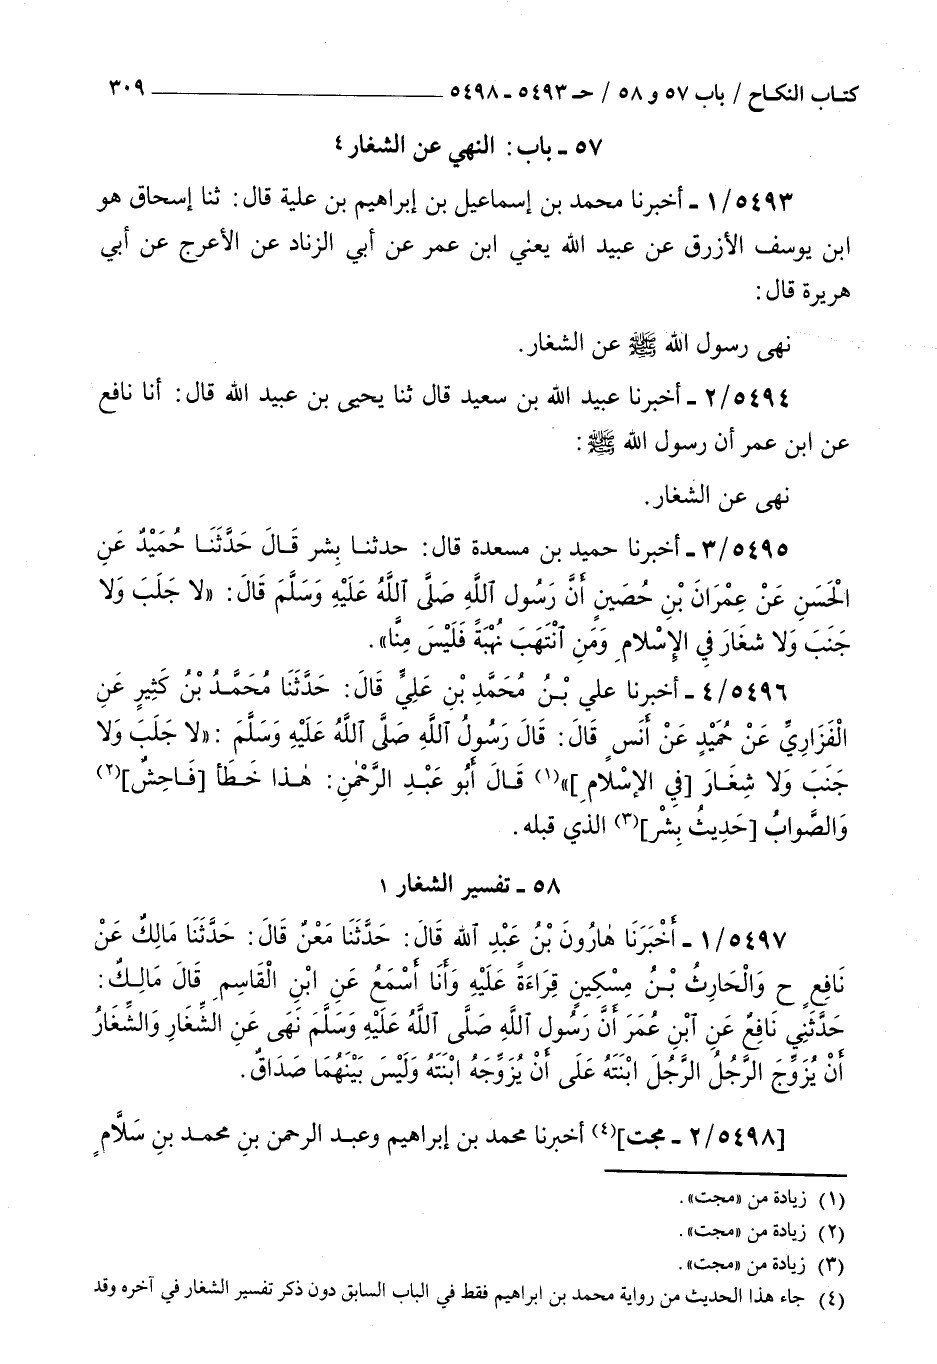 كتاب النكاح / باب ٥٧ و ٥٨ / حـ ٥٤٩٣ ـ ٥٤٩٨ ٣٠٩
٥٧ ـ باب: النهي عن الشغار ٤
١/٥٤٩٣ ـ أخبرنا محمد بن إسماعيل بن إبراهيم بن علية قال: ثنا إسحاق هو
ابن يوسف الأزرق عن عبيد الله يعني ابن عمر عن أبي الزناد عن الأعرج عن أبي
هريرة قال:
نهى رسول الله ﷺ عن الشغار.
٢/٥٤٩٤ ـ أخبرنا عبيد الله بن سعيد قال ثنا يحيى بن عبيد الله قال: أنا نافع
عن ابن عمر أن رسول الله ﷺ:
نهى عن الشغار.
٣/٥٤٩٥ ـ أخبرنا حميد بن مسعدة قال: حدثنا بِشر قَالَ حَدَّثَنَا حُمَيْدٌ عَنِ
الْحَسَنِ عَنْ عِمْرَانَ بْنِ حُصَينٍ أَنَّ رَسُولَ اللَّهِ صَلَّى اللَّهُ عَلَيْهِ وَسَلَّمَ قَالَ: «لا جَلَبَ وَلا
جَنَبَ وَلا شغَارَ في الإِسْلَامِ وَمَنِ انْتَهَبَ نُهْبَةً فَلَيْسَ مِنَّا».
٤/٥٤٩٦ ـ أخبرنا علي بْنُ مُحَمَّدِ بْنِ عَلِيٍّ قَالَ: حَدَّثَنَا مُحَمَّدُ بْنُ كَثِيرٍ عَنِ
الْفَزَارِيِّ عَنْ حُمَيْدٍ عَنْ أَنَسٍ قَالَ: قَالَ رَسُولُ اللَّهِ صَلَّى اللَّهُ عَلَيْهِ وَسَلَّمَ: «لا جَلَبَ وَلا
جَنَبَ وَلا شِغَارَ [في الإسْلَامِ]»(١) قَالَ أَبُو عَبْدِ الرَّحْمٰنِ: هٰذا خَطَأ [فَاحِشٌ](٢)
وَالصَّوابُ [حَدِيثُ بِشْرٍ](٣) الذي قبله.
٥٨ ـ تفسير الشغار ١
١/٥٤٩٧ ـ أَخْبَرَنَا هٰارُونَ بْنُ عَبْدِ الله قَالَ: حَدَّثَنَا مَعْنٌ قَالَ: حَدَّثَنَا مَالِكٌ عَنْ
نَافِعٍ ح وَالْحَارِثُ بْنُ مِسْكِينٍ قِرَاءَةً عَلَيْهِ وَأَنَا أَسْمَعُ عَنِ ابْنِ الْقَاسِمِ قَالَ مَالِكٌ:
حَدَّثَنِي نَافِعٌ عَنِ ابْنِ عُمَرَ أَنَّ رَسُولَ اللَّهِ صَلَّى اللَّهُ عَلَيْهِ وَسَلَّمَ نَهَى عَنِ الشِّغَارِ وَالشِّغَارُ
أَنْ يُزَوِّجَ الرَّجُلُ الرَّجُلَ ابْنَتَهُ عَلَى أَنْ يُزَوِّجَهُ ابْنَتَهُ وَلَيْسَ بَيْنَهُمَا صَدَاقٌ.
[٢/٥٤٩٨ ـ مجت](٤) أخبرنا محمد بن إبراهيم وعبد الرحمن بنِ محمد بنِ سَلَّامٍ
(١) زيادة من «مجت».
(٢) زيادة من «مجت».
(٣) زيادة من «مجت».
(٤) جاء هذا الحديث من رواية محمد بن ابراهيم فقط في الباب السابق دون ذكر تفسير الشغار في آخره وقد